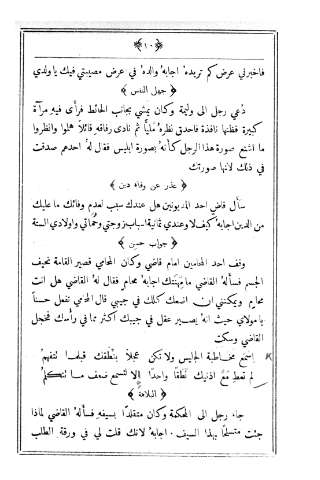 ﴿ ١٠ ﴾
فاخبرني عرض كم تريده اجابه والده في عرض مصيبتي فيك يا ولدي
﴿ جهل النفس ﴾
دُعي رجل الى وليمة وكان يمشي بجانب الحائط فرأى فيه مرآة
كبيرة فظنها نافذة فاحدق نظره مليًا ثم نادى رفاقه قائلاً هلموا وانظروا
ما اشنع صورة هذا الرجل كأنه بصورة ابليس فقال له احدهم صدقت
في ذلك لانها صورتك
﴿ عذر عن وفاء دين ﴾
سأل قاضٍ احد المديونين هل عندك سبب لعدم وفائك ما عليك
من الدين اجابه كيف لا وعندي ثمانية اسباب زوجتي وحماتي واولادي الستة
﴿ جواب حسن ﴾
وقف احد المحامين امام قاضي وكان المحامي قصير القامة نحيف
الجسم فسأله القاضي ما مهنتك اجابه محامٍ فقال له القاضي هل انت
محامٍ ويمكنني ان اضعك كلك في جيبي قال المحامي تفعل حسناً
يا مولاي حيث انه يصير عقل في جيبك اكثر مما في رأسك فخجل
القاضي وسكت
اسمع مخاطبة الجليس ولا تكن عجلاً بنطقك قبلما تتفهم
لم تعط مع اذنيك نطقًا واحدًا الا لتسمع ضعف ما تتكلم
﴿ البلاغة ﴾
جاء رجل الى المحكمة وكان متقلدًا بسيفه فسأله القاضي لماذا
جئت متسلحًا بهذا السيف. اجابه لانك قلت لي في ورقة الطلب